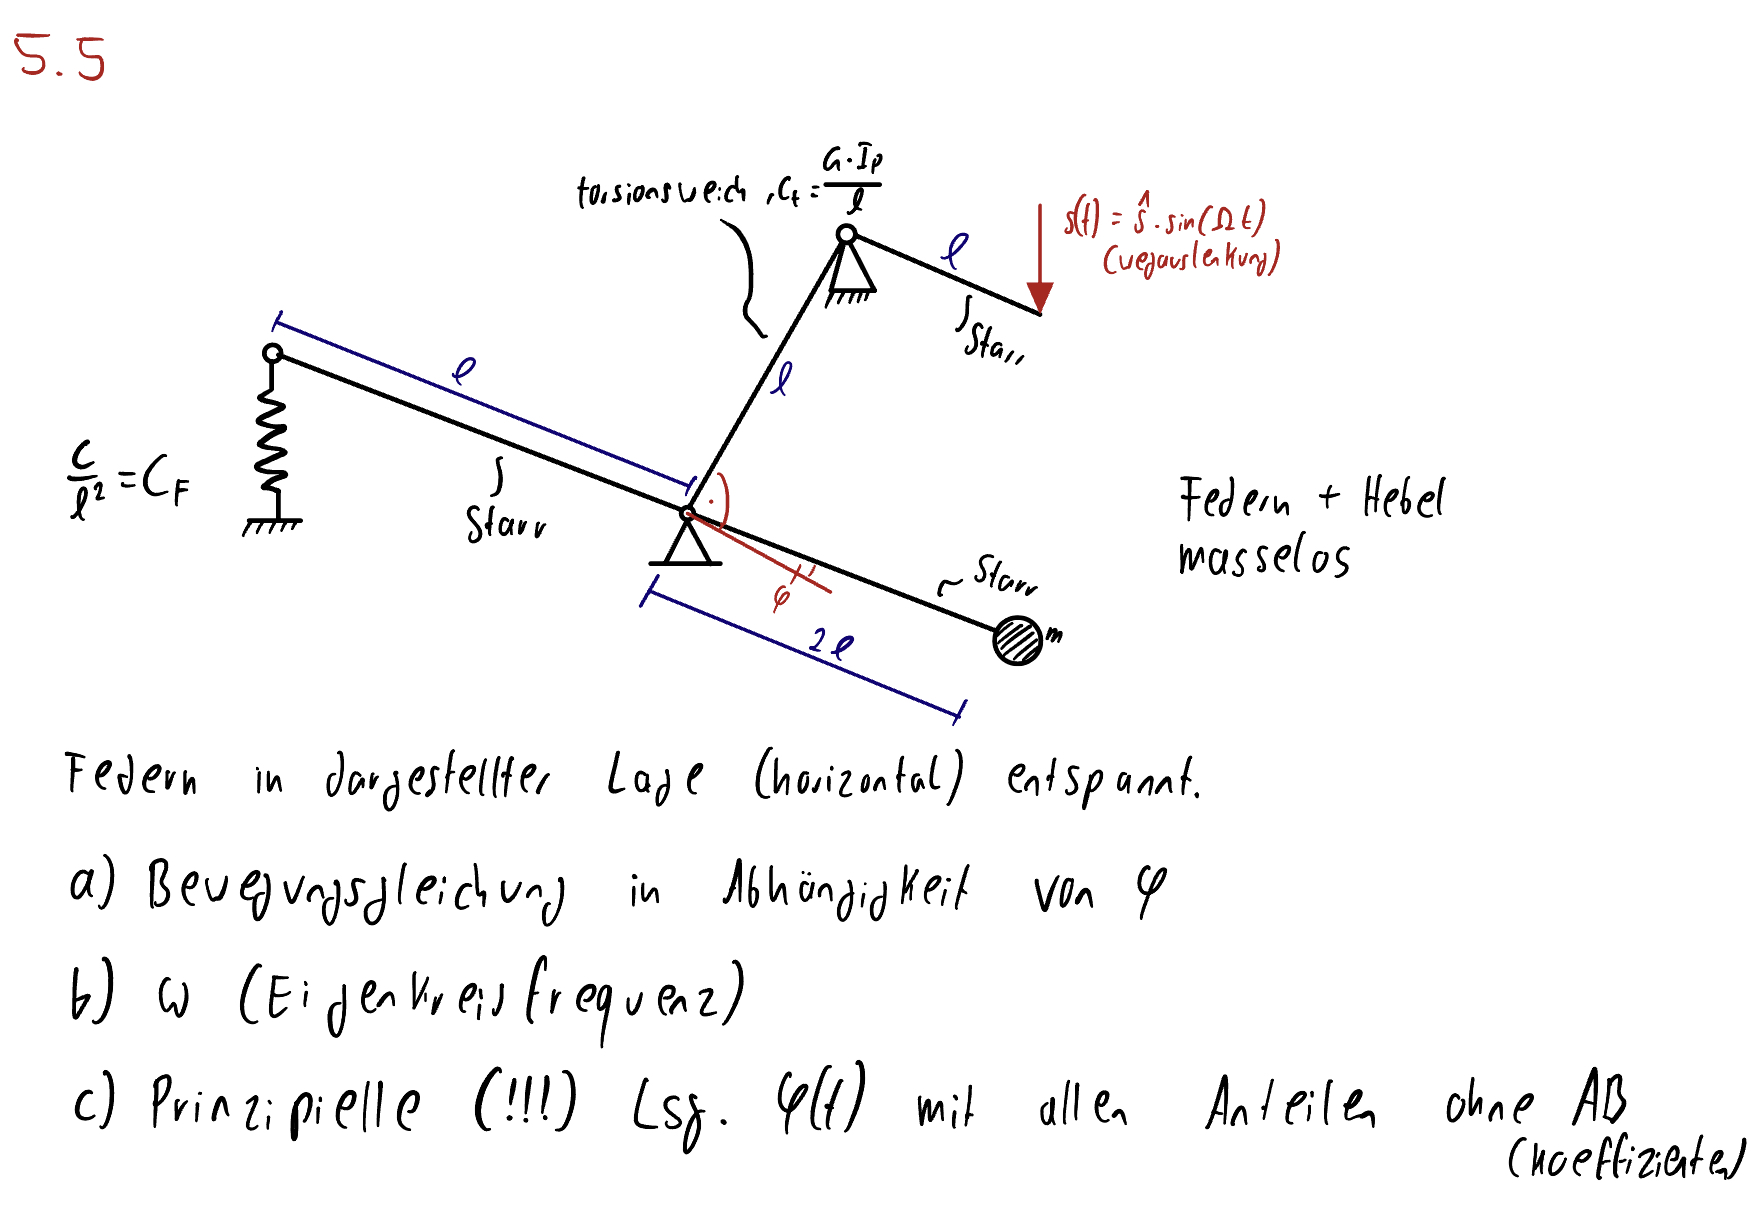 5.5
torsionsweich , Ct = G·Ip / l
s(t) = ŝ · sin(Ωt)
(Wegauslenkung)
l
Starr
l
l
C / l² = CF
Starr
Federn + Hebel
masselos
Starr
φ
m
2l
Federn in dargestellter Lage (horizontal) entspannt.
a) Bewegungsgleichung in Abhängigkeit von φ
b) ω (Eigenkreisfrequenz)
c) Prinzipielle (!!!) Lsg. φ(t) mit allen Anteilen ohne AB
(Koeffizienten)